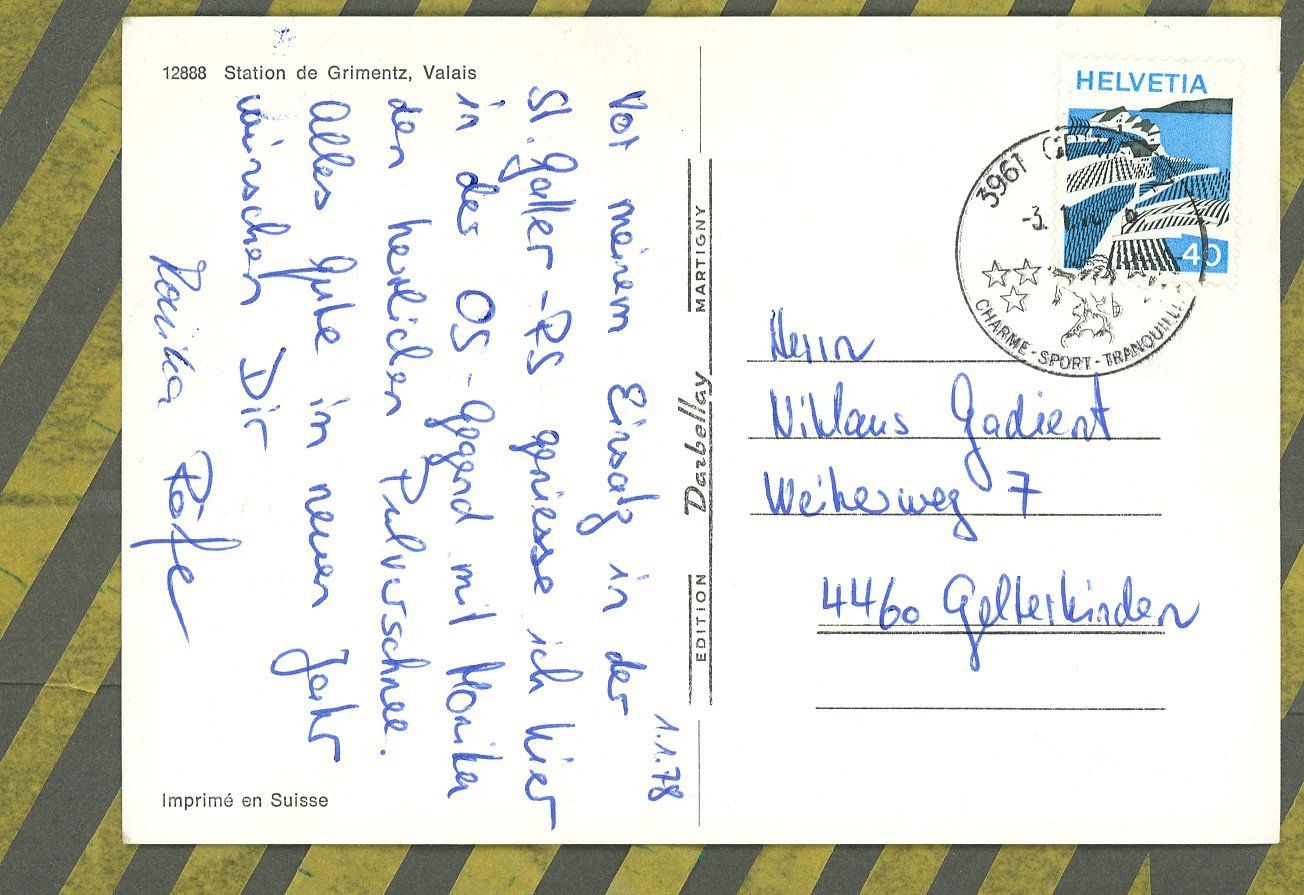 12888 Station de Grimentz, Valais
1.1.78
Vor meinem Einsatz in der
St. Galler-RS geniesse ich hier
in des OS-Gegend mit Monika
den herrlichen Pulverschnee.
Alles Gute im neuen Jahr
wünschen Dir
Monika
Imprimé en Suisse
EDITION Darbellay MARTIGNY
HELVETIA
40
3961
CHARME - SPORT - TRANQUILL
Herrn
Niklaus Gadient
Weiherweg 7
4460 Gelterkinden